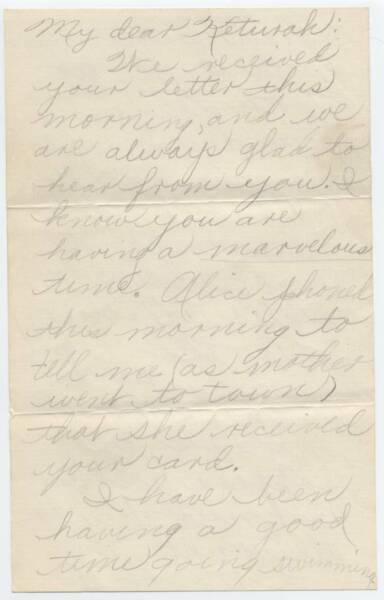 My dear Keturah:
We received
your letter this
morning, and we
are always glad to
hear from you. I
know you are
having a marvelous
time. Alice phoned
this morning to
tell me (as mother
went to town)
that she received
your card.
I have been
having a good
time going swimming